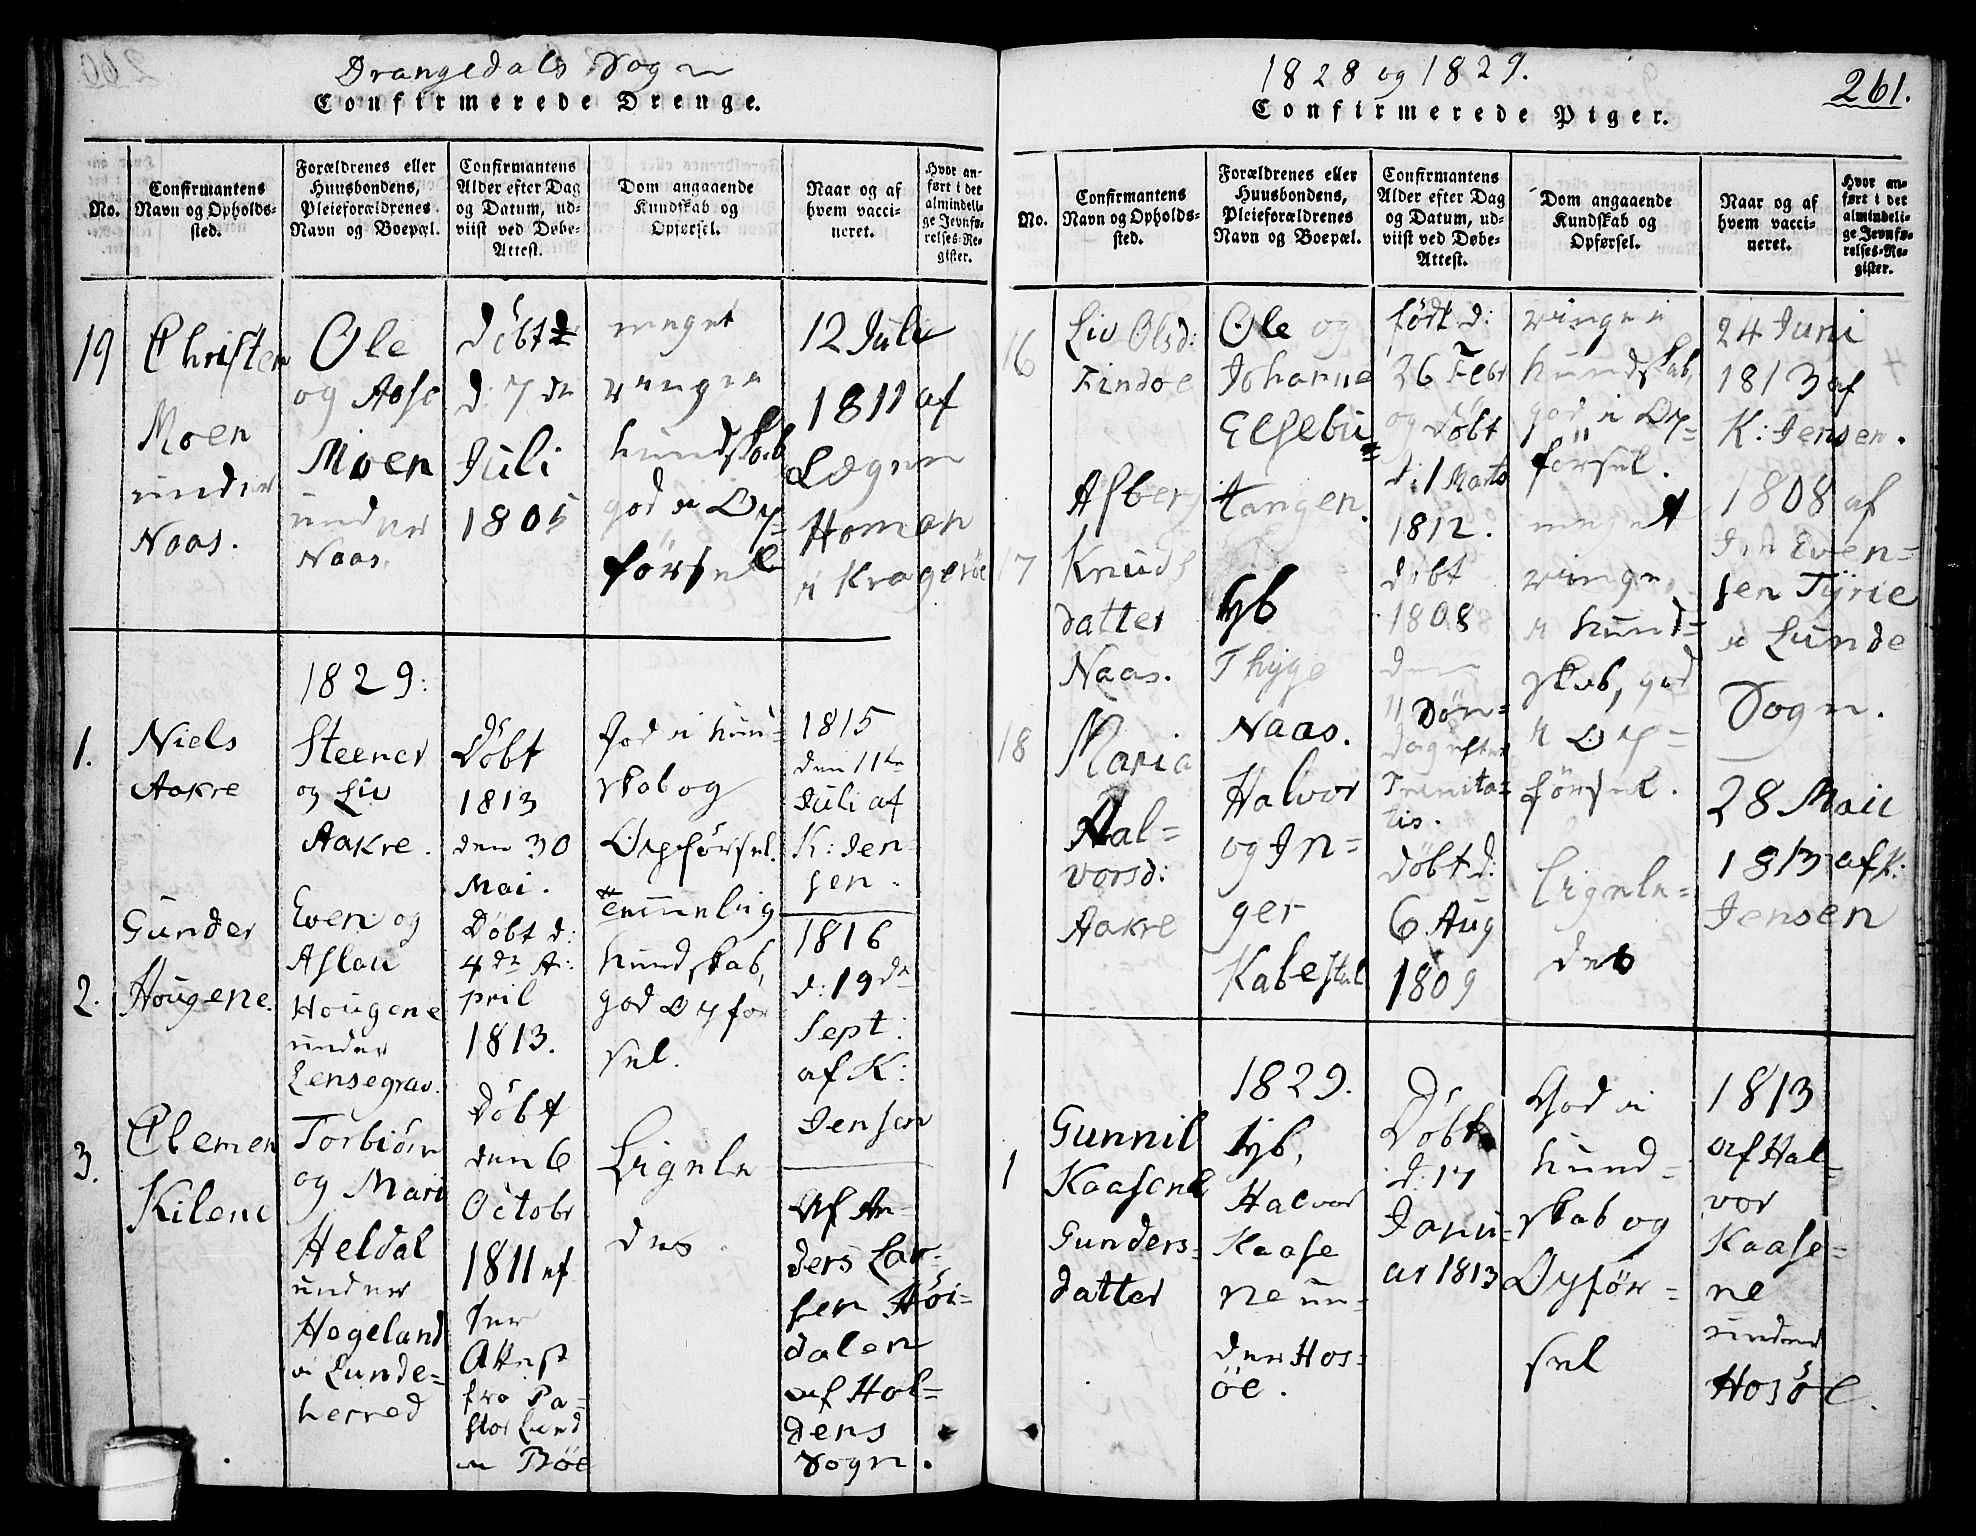 Drangedals Sogn
Confirmerede Drenge.
No.
Confirmantens
Navn og Opholds-
sted.
Forældrenes eller
Huusbondens,
Pleieforældrenes
Navn og Boepæl.
Confirmantens
Alder efter Dag
og Datum, ud-
viist ved Døbe-
Attest.
Dom angaaende
Kundskab og
Opførsel.
Naar og af
hvem vacci-
neret.
Hvor an-
ført i det
almindeli-
ge Jevnfø-
relses-Re-
gister.
19
Christen
Moen
under
Naas.
Ole
og Aase
Moen
under
Naas.
Döbt
d. 7de
Juli
1805
meget
ringe
kundskab
god i Op-
førsel
12 Juli
1811 af
Lægen
Homan
i Kragerøe
1829:
1.
Niels
Aakre
Steener
og Liv
Aakre.
Döbt
1813
den 30
Mai.
God i kun-
skab og
Opførsel.
1815
den 11te
Juli af
K: Jen-
sen.
2.
Gunder
Hougene.
Even og
Aslau
Hougene
under
Lensegrav.
Döbt d:
4de A-
pril
1813.
temmelig
kundskab,
god Opfør
sel.
1816
d: 19de
Sept:
af K:
Jensen
3.
Clemen
Kilene
Torbiørn
og Mari
Heldal
under
Hegeland
i Lunde-
herred
Döbt
den 6
Octobr
1811 ef
ter
Attest
fra Pa-
stor Lund
i Böe
Ligele
des.
Af An-
ders Lar-
sen Höi-
dalen
af Hol-
dens
Sogn.
1828 og 1829.
261.
Confirmerede Piger.
No.
Confirmantens
Navn og Opholds-
sted.
Forældrenes eller
Huusbondens,
Pleieforældrenes
Navn og Boepæl.
Confirmantens
Alder efter Dag
og Datum, ud-
viist ved Døbe-
Attest.
Dom angaaende
Kundskab og
Opførsel.
Naar og af
hvem vacci-
neret.
Hvor an-
ført i det
almindeli-
ge Jevnfø-
relses-Re-
gister.
16
Liv Olsd:
Findøe
Ole og
Johanne
Elsebu
tangen.
født d:
26 Febr
og Döbt
d: 1 Marts
1812.
ringe i
kundskab,
god i Op-
førsel.
24 Juni
1813 af
K: Jensen.
17
Asberg
Knuds
datter
Naas.
Thyge
Naas.
döbt
1808
den
11 Søn-
dag efter
Trinita-
tis.
meget
ringe,
i kund-
skab, god
i Op-
førsel.
1808 af
Even-
sen Tyrie
i Lunde
Sogn.
18
Maria
Hal-
vorsd:
Aakre
Halvor
og In-
ger
Kabestul
Döbt d:
6 Aug
1809
Ligele-
des
28 Maii
1813 af K:
Jensen
1829.
1
Gunnil
Kaasene
Gunders-
datter
Halvor
Kaase
ne un-
der Hos-
öe.
Döbt
d: 17
Janu-
ar 1813
God i
kund-
skab og
Opför-
sel
1813
af Hal-
vor
Kaase-
ne
under
Hosöe.